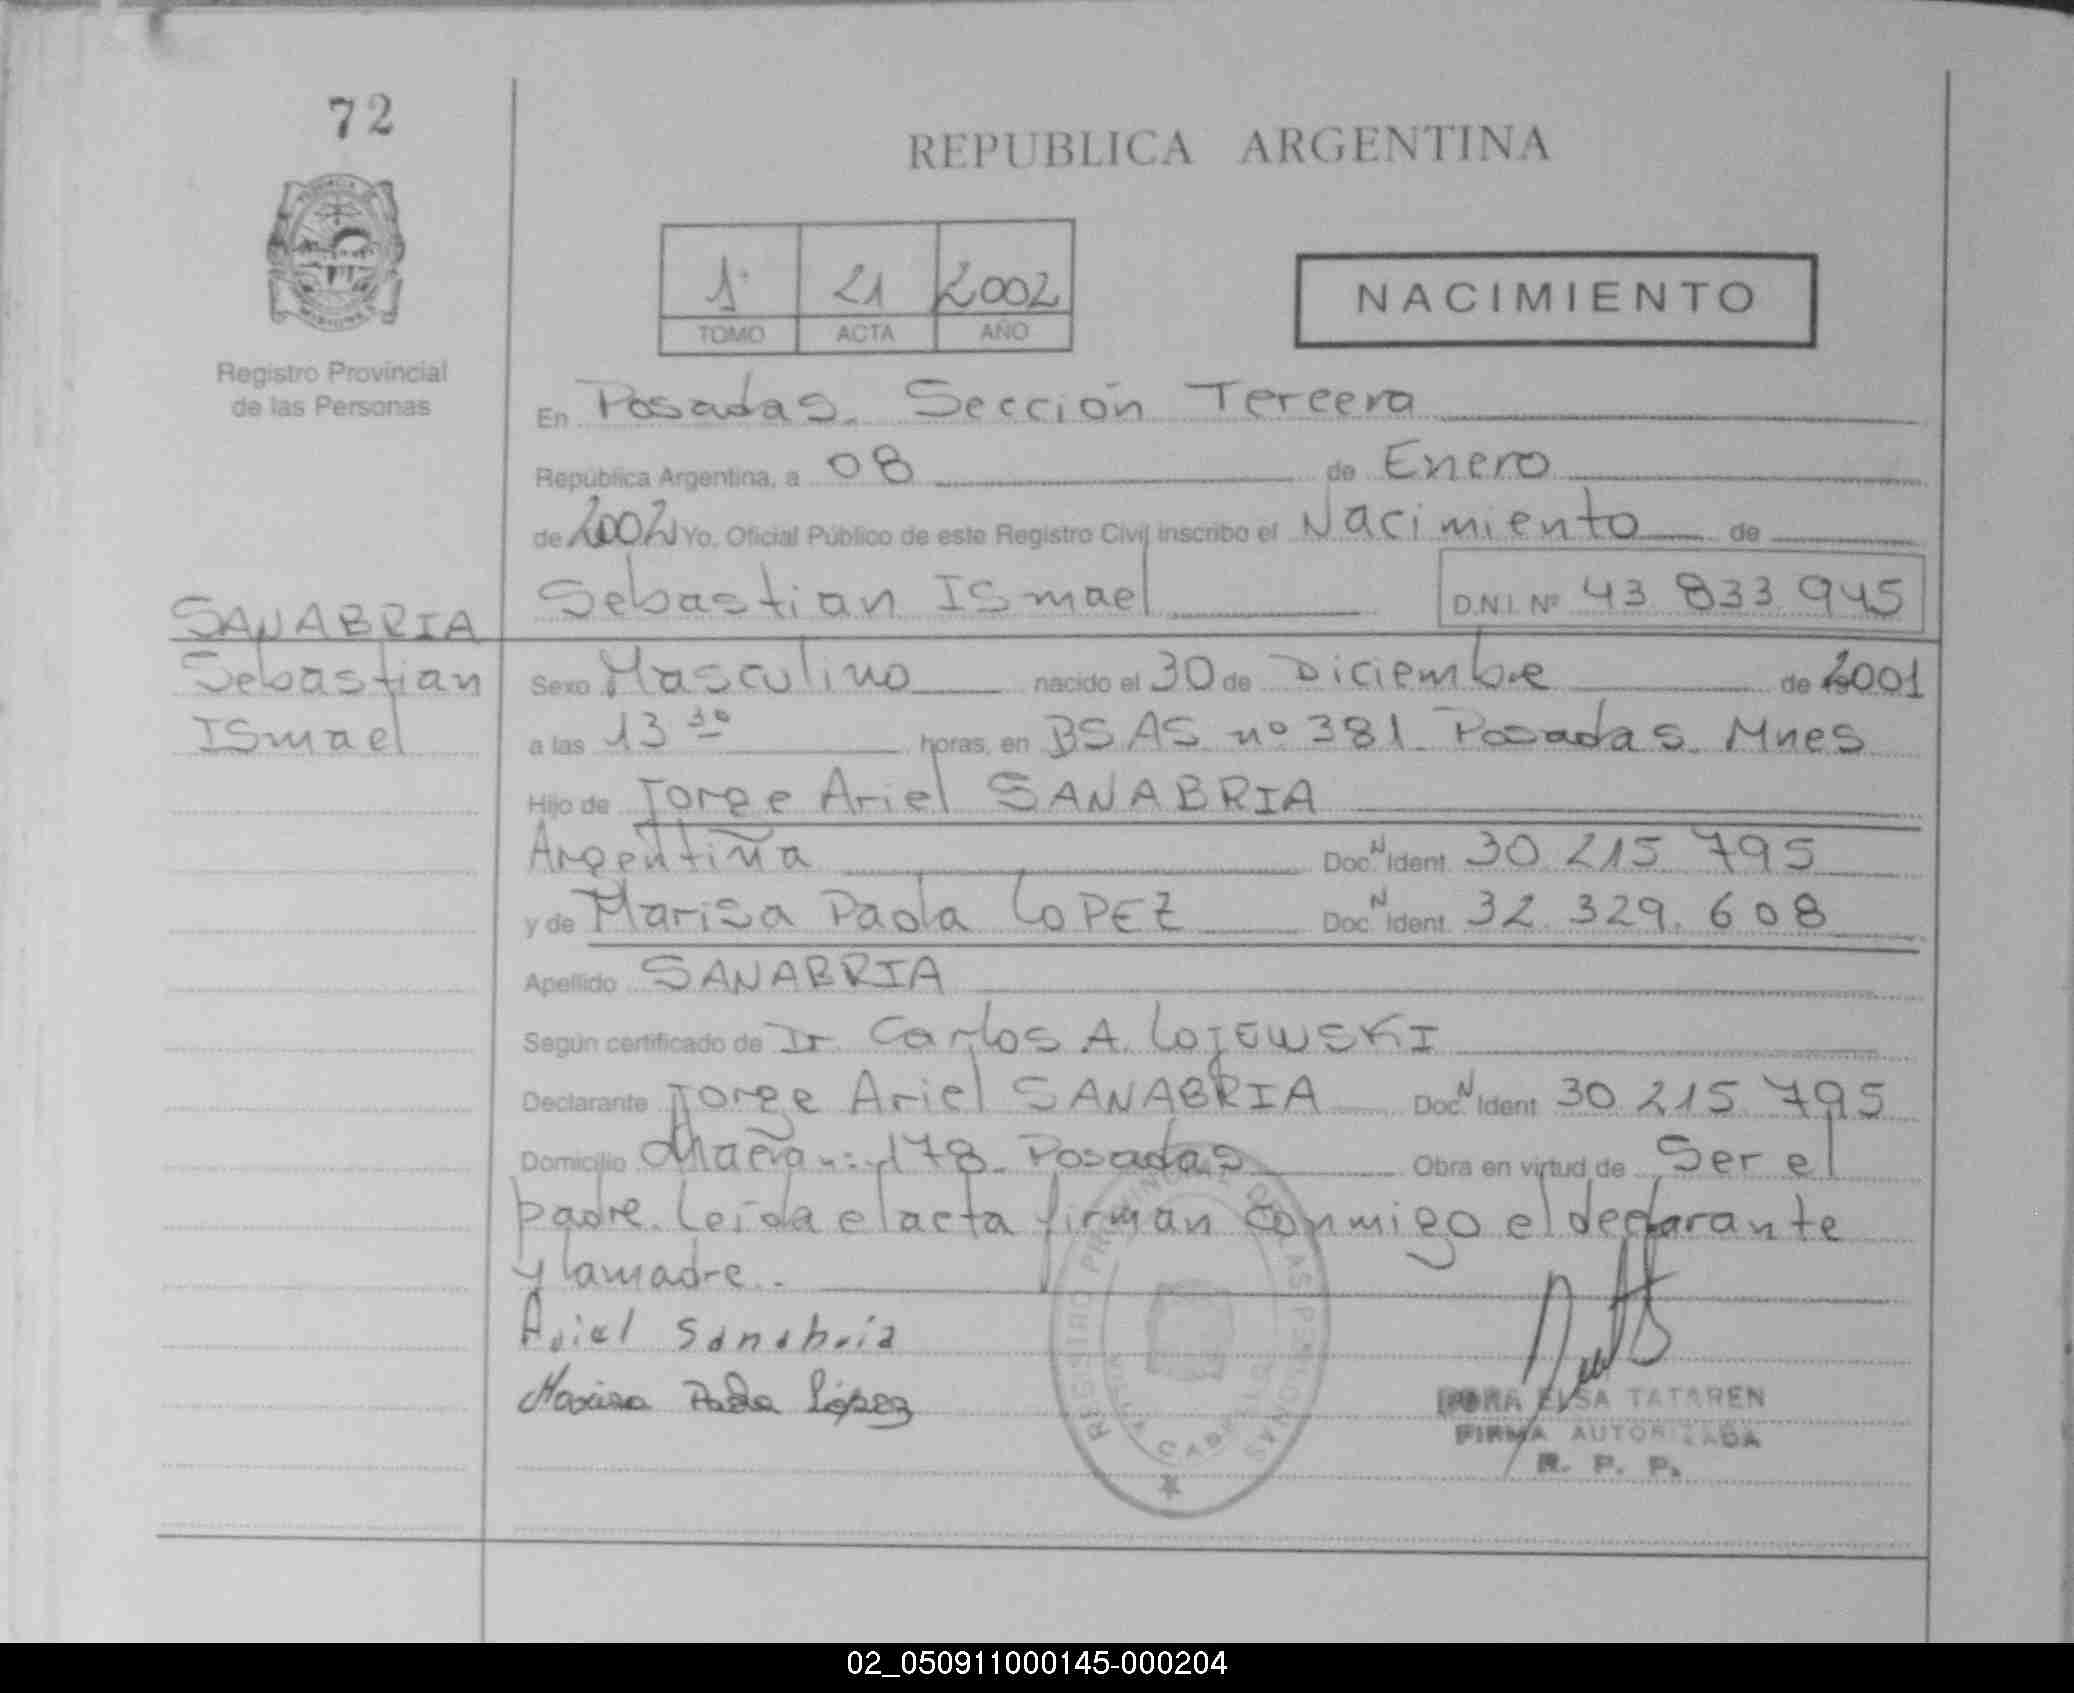 72
REPUBLICA ARGENTINA
1º 21 2002
TOMO ACTA AÑO
NACIMIENTO
Registro Provincial
de las Personas
En Posadas. Sección Tercera
República Argentina, a 08 de Enero
de 2002 Yo, Oficial Público de este Registro Civil inscribo el Nacimiento de
Sebastian ISmael D.N.I. Nº 43 833 945
SANABRIA
Sebastian
ISmael
Sexo Masculino nacido el 30 de Diciembre de 2001
a las 13 30 horas, en BS AS nº 381 Posadas. Mnes
Hijo de Jorge Ariel SANABRIA
Argentina Doc. N Ident. 30 215 795
y de Marisa Paola LOPEZ Doc. N Ident. 32.329.608
Apellido SANABRIA
Según certificado de Dr. Carlos A. LOJEWSKI
Declarante Jorge Ariel SANABRIA Doc. N Ident. 30 215 795
Domicilio 178 Posadas Obra en virtud de Ser el
padre. Leída el acta firman conmigo el declarante
y la madre.
Ariel Sanabria
Marisa Paola López
REGISTRO PROVINCIAL DE LAS PERSONAS
ELSA TATAREN
FIRMA AUTORIZADA
R. P. P.
02_050911000145-000204